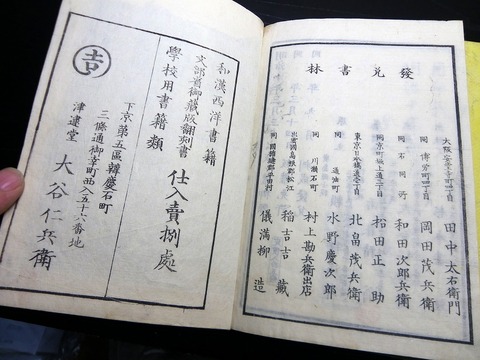 發兌書林
大阪安堂寺町四丁目
田中太右衛門
同 備後町四丁目
岡田茂兵衛
同 石同所
和田次郎兵衛
松田正助
東京日本橋通壹丁目
北畠茂兵衛
同 通油町
水野慶次郎
同 川瀬石町
村上勘兵衛出店
出雲國島根郡松江
稲吉吉藏
儀満柳造
和漢西洋書籍
文部省御藏版翻刻書
學校用書籍類
仕入賣捌處
下京第五區韓慶石町
三條通御幸町西入五十六番地
津逮堂 大谷仁兵衛
吉